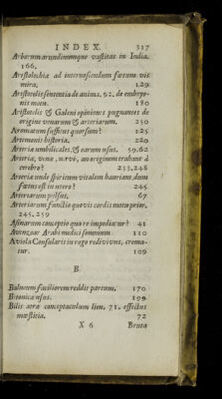 INDEX. 317
Arborum arundinumque vastitas in India.
166.
Aristolochia ad interficiendum fœtum vis
mira. 129
Aristotelis sententia de anima. 92. de embryo-
nis motu. 180
Aristotelis & Galeni opiniones pugnantes de
origine venarum & arteriarum. 250
Aromatum suffitus quorsum? 125
Artemonis historia. 220
Arteria umbilicales, & earum usus. 59.62
Arteria, vena, nervi, an originem trahant à
cerebro? 233.248
Arteria unde spiritum vitalem hauriant, dum
fœtus est in utero? 245
Arteriarum pulsus. 67
Arteriarum functio quovis cordis motu prior.
245.259
Asinarum conceptio qua re impediatur? 41
Avenzoar Arabs medici somnium 110
Aviola Consularis in rogo redivivus, crema-
tur. 109
B.
Balneum faciliorem reddit partum. 170
Betonica usus. 199
Bilis atra conceptaculum lien. 71. effectus
mœstitia. 72
X 6 Bruta